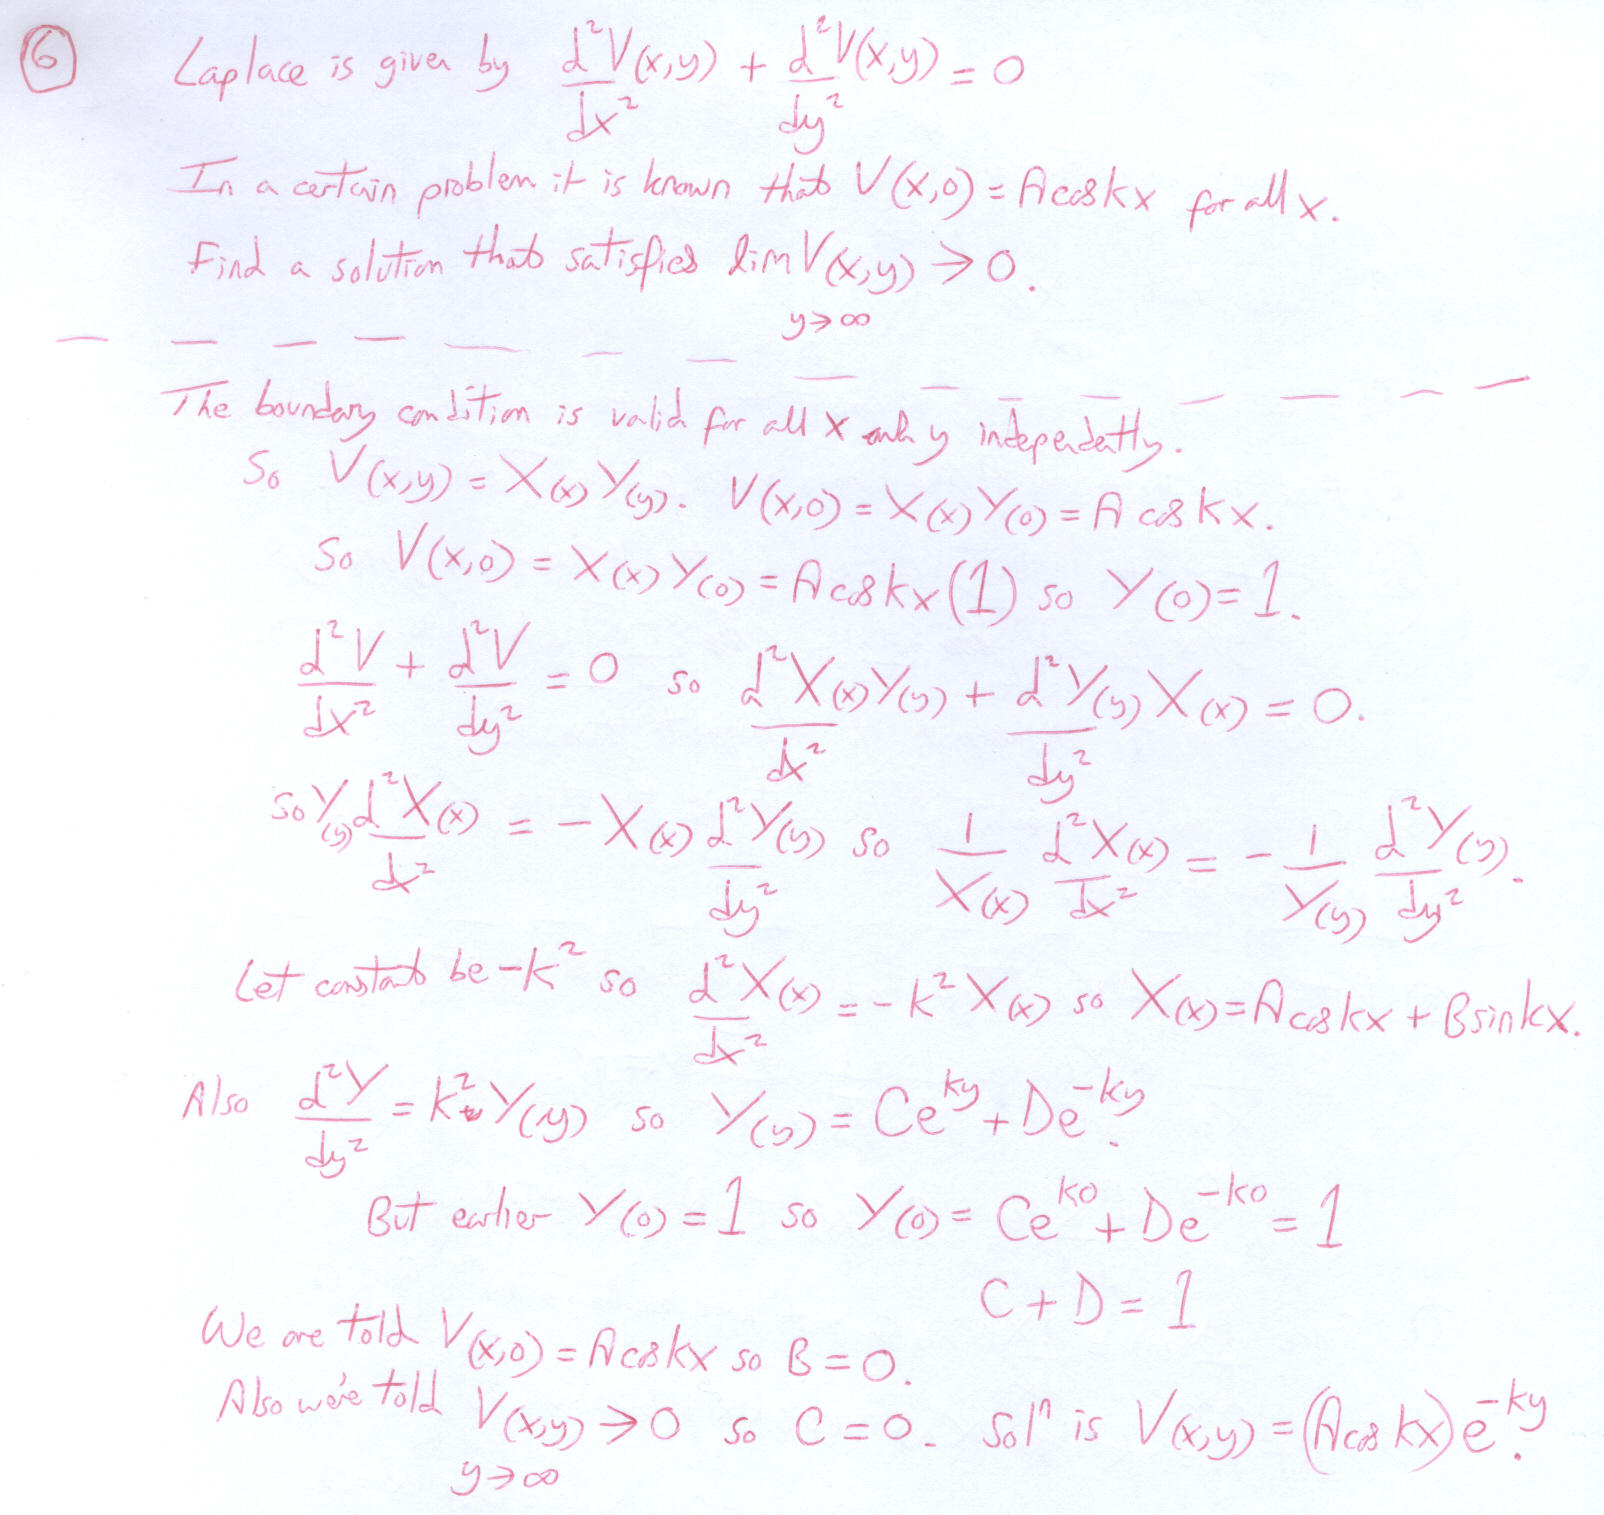 6 Laplace is given by d²V(x,y)/dx² + d²V(x,y)/dy² = 0
In a certain problem it is known that V(x,0) = A cos kx for all x.
Find a solution that satisfies lim V(x,y) → 0.
y→∞
The boundary condition is valid for all x and y independently.
So V(x,y) = X(x) Y(y). V(x,0) = X(x) Y(0) = A cos kx.
So V(x,0) = X(x) Y(0) = A cos kx (1) so Y(0) = 1.
d²V/dx² + d²V/dy² = 0 so d²X(x)Y(y)/dx² + d²Y(y)X(x)/dy² = 0.
so Y(y) d²X(x)/dx² = -X(x) d²Y(y)/dy² so 1/X(x) d²X(x)/dx² = - 1/Y(y) d²Y(y)/dy².
Let constant be -k² so d²X(x)/dx² = -k² X(x) so X(x) = A cos kx + B sin kx.
Also d²Y/dy² = k² Y(y) so Y(y) = Ce^ky + De^-ky.
But earlier Y(0) = 1 so Y(0) = Ce^k0 + De^-k0 = 1
C + D = 1
We are told V(x,0) = A cos kx so B = 0.
Also we're told V(x,y) → 0 so C = 0. Solⁿ is V(x,y) = (A cos kx) e^-ky.
y→∞